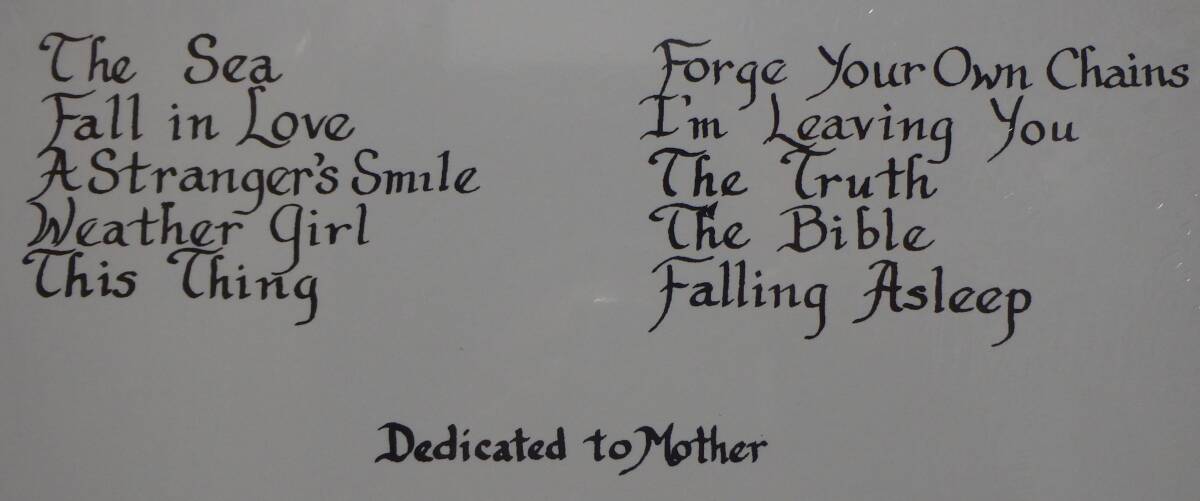 The Sea
Fall in Love
A Stranger's Smile
Weather Girl
This Thing
Forge Your Own Chains
I'm Leaving You
The Truth
The Bible
Falling Asleep
Dedicated to Mother